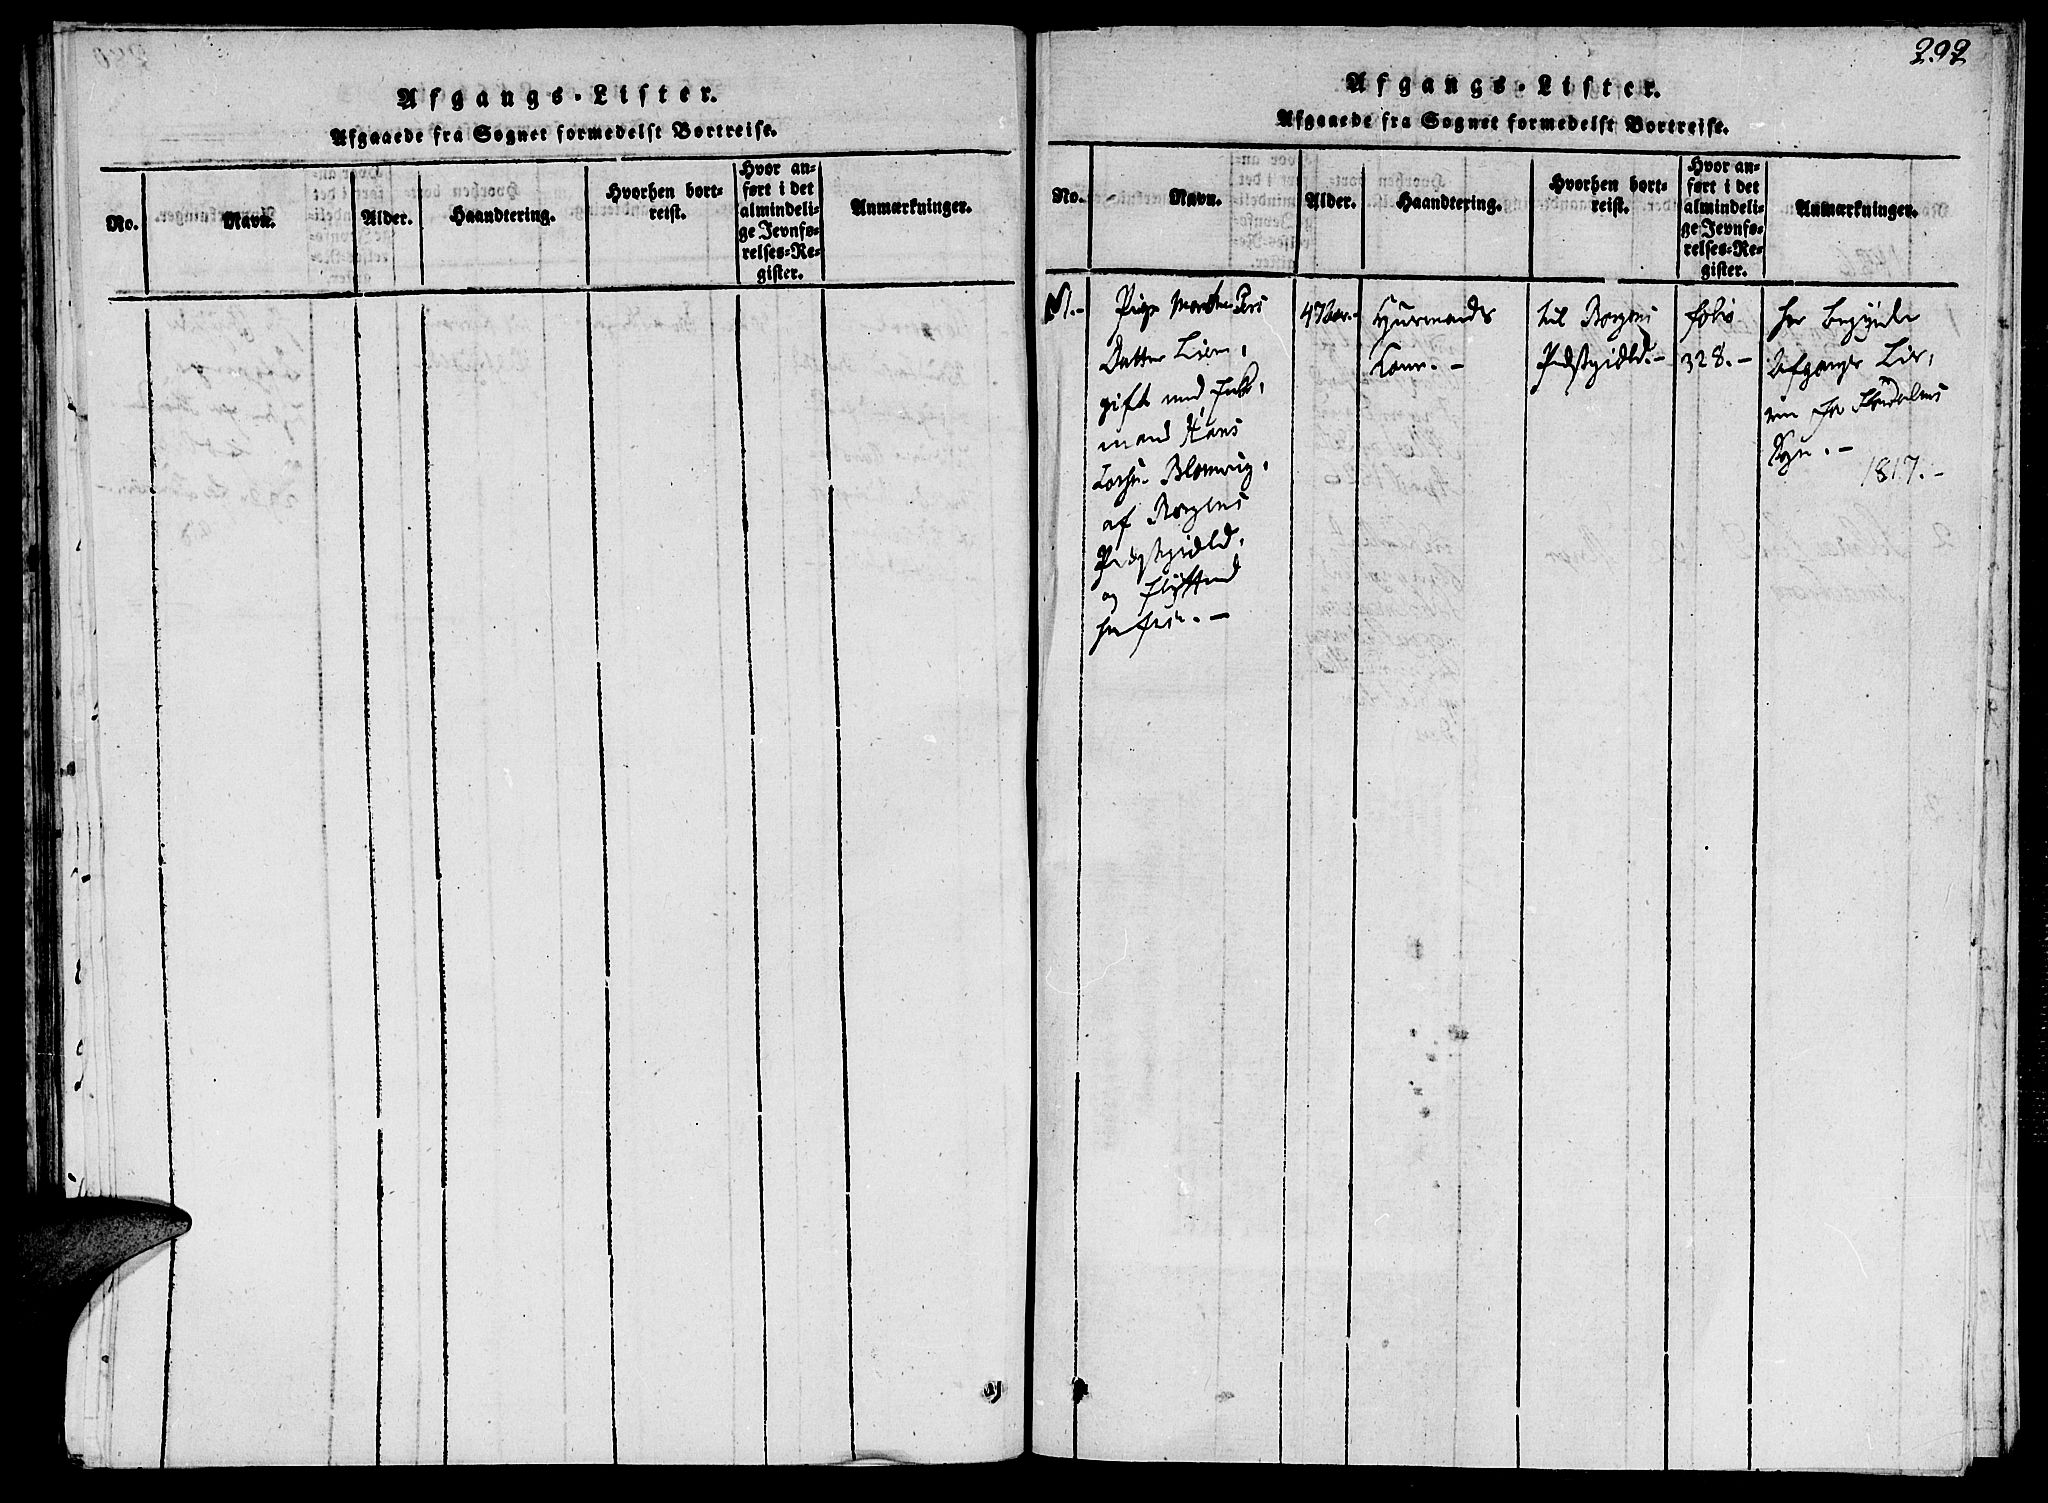 Afgangs-Lister.
Afgaaede fra Sognet formedelst Bortreise.
No.
Navn.
Alder.
Haandtering.
Hvorhen bort-
reist.
Hvor an-
ført i det
almindeli-
ge Jevnfø-
relses-Re-
gister.
Anmærkninger.
292
Afgangs-Lister.
Afgaaede fra Sognet formedelst Bortreise.
No.
Navn.
Alder.
Haandtering.
Hvorhen bort-
reist.
Hvor an-
ført i det
almindeli-
ge Jevnfø-
relses-Re-
gister.
Anmærkninger.
1.-
Pige Marthe Pers
Datter Lien,
gift med
mand Hans
Blomvig,
af Borgens
Præstegield,
og flyttend
47 aar.-
Huusmands
Kone. -
til Borgens
Præstegield.-
folio
328. -
her begynde
Afgangs Lis-
1817.-